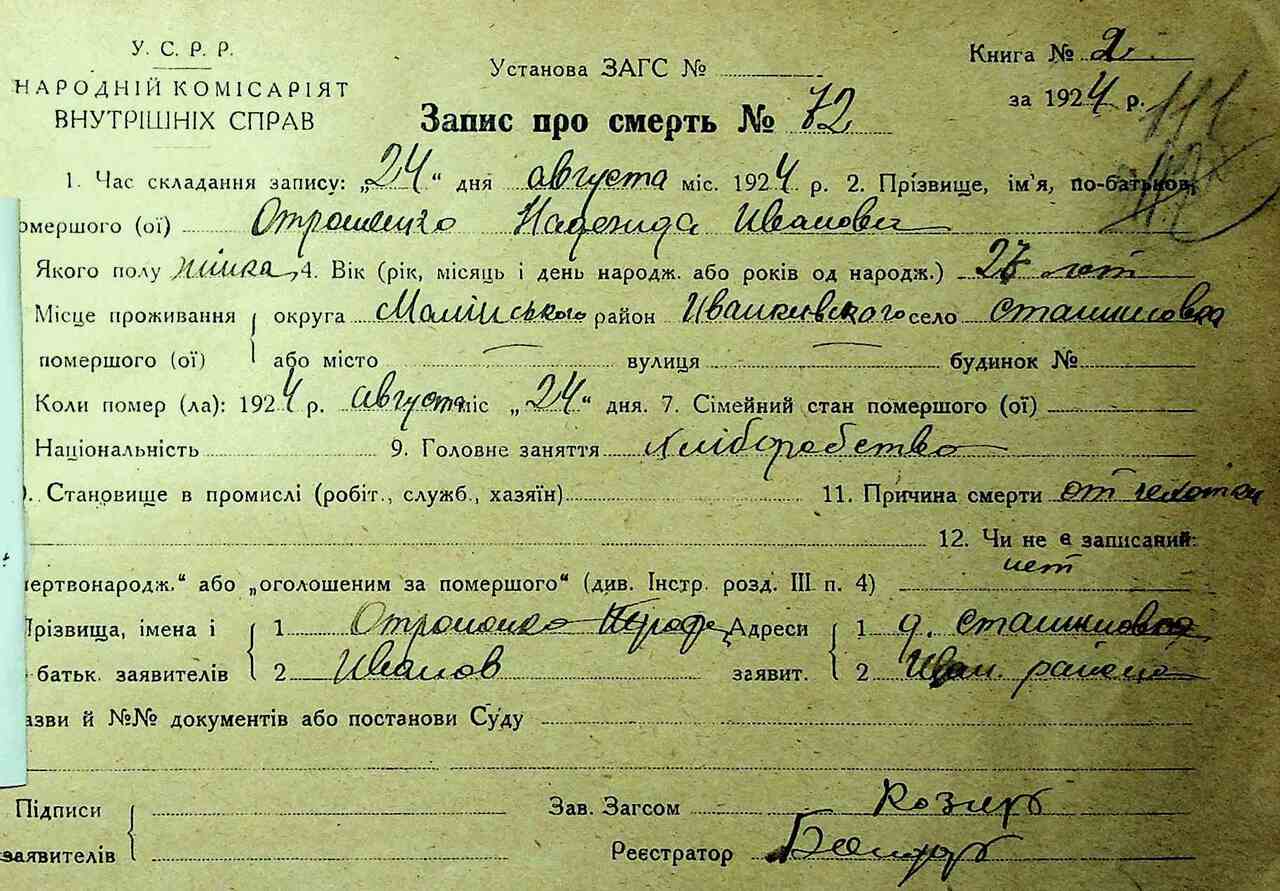 У. С. Р. Р.
НАРОДНІЙ КОМІСАРІЯТ
ВНУТРІШНІХ СПРАВ
Установа ЗАГС №
Книга № 2
за 1924 р.
111
Запис про смерть № 72
1. Час складання запису: „24“ дня августа міс. 1924 р. 2. Прізвище, ім'я, по-батькові
омершого (ої) Отрошенко Надежида Иванови
Якого полу жінка 4. Вік (рік, місяць і день народж. або років од народж.) 27 лет
Місце проживання округа Малінського район Иванкивского село Сташиловка
помершого (ої) або місто вулиця будинок №
Коли помер (ла): 1924 р. августа міс „24“ дня. 7. Сімейний стан помершого (ої)
Національність 9. Головне заняття хліборобство
). Становище в промислі (робіт., служб., хазяїн) 11. Причина смерти от
12. Чи не є записаний:
ертвонародж.“ або „оголошеним за помершого“ (див. Інстр. розд. III п. 4) нет
Прізвища, імена і 1 Отрошенко Адреси 1 д. Сташиловка
батьк. заявителів 2 Иванов заявит. 2 Иван. района
азви й №№ документів або постанови Суду
Підписи
заявителів
Зав. Загсом
Реєстратор